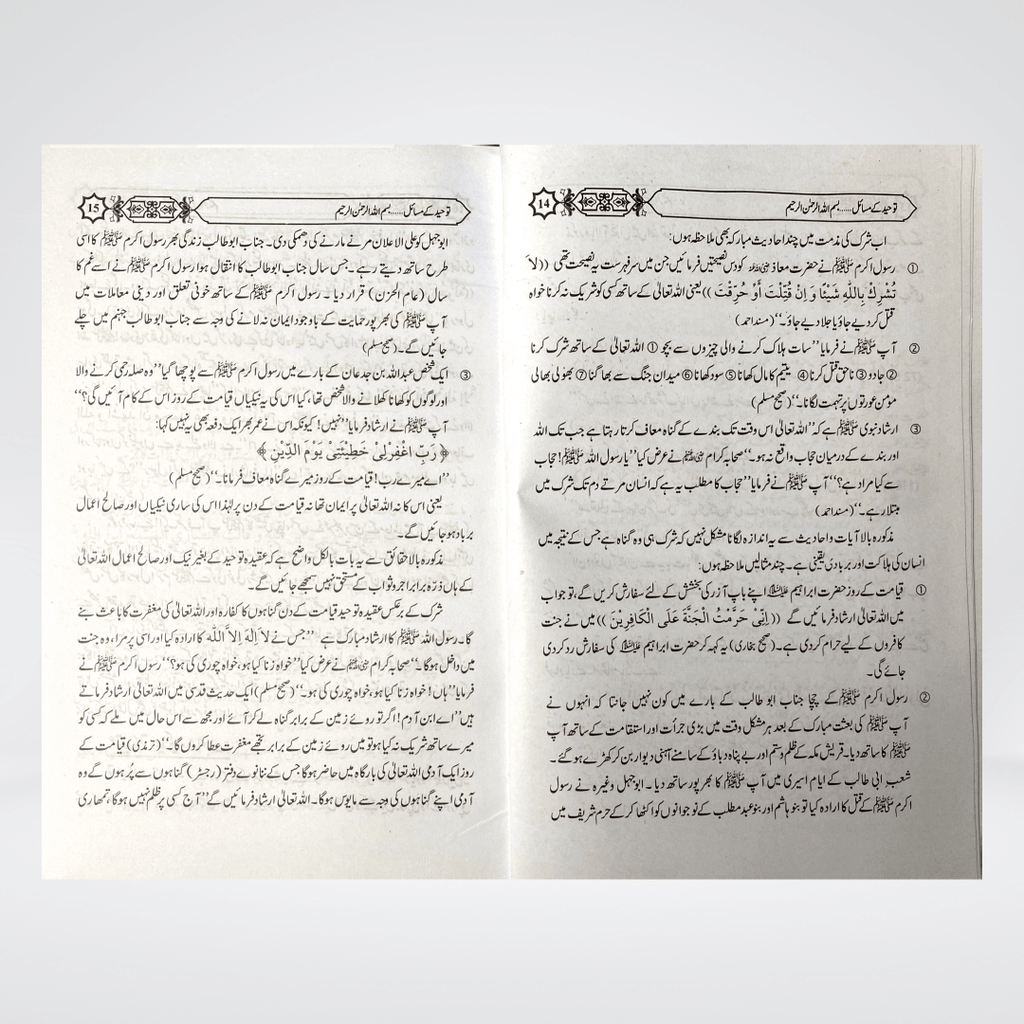 توحید کے مسائل ...... بسم اللہ الرحمٰن الرحیم
14
اب شرک کی مذمت میں چند احادیث مبارکہ بھی ملاحظہ ہوں:
① رسول اکرم ﷺ نے حضرت معاذ رضی اللہ عنہ کو دس نصیحتیں فرمائیں جن میں سرفہرست یہ نصیحت تھی ((لاَ
تُشْرِكْ بِاللّٰهِ شَيْئًا وَ اِنْ قُتِلْتَ أَوْ حُرِّقْتَ)) یعنی اللہ تعالیٰ کے ساتھ کسی کو شریک نہ کرنا خواہ
قتل کر دیے جاؤ یا جلا دیے جاؤ۔‘‘ (مسند احمد)
② آپ ﷺ نے فرمایا ’’سات ہلاک کرنے والی چیزوں سے بچو ① اللہ تعالیٰ کے ساتھ شرک کرنا
② جادو ③ ناحق قتل کرنا ④ یتیم کا مال کھانا ⑤ سود کھانا ⑥ میدان جنگ سے بھاگنا ⑦ بھولی بھالی
مؤمن عورتوں پر تہمت لگانا۔‘‘ (صحیح مسلم)
③ ارشاد نبوی ﷺ ہے کہ ’’اللہ تعالیٰ اس وقت تک بندے کے گناہ معاف کرتا رہتا ہے جب تک اللہ
اور بندے کے درمیان حجاب واقع نہ ہو۔‘‘ صحابہ کرام رضی اللہ عنہم نے عرض کیا ’’یا رسول اللہ ﷺ! حجاب
سے کیا مراد ہے؟‘‘ آپ ﷺ نے فرمایا ’’حجاب کا مطلب یہ ہے کہ انسان مرتے دم تک شرک میں
مبتلا رہے۔‘‘ (مسند احمد)
مذکورہ بالا آیات و احادیث سے یہ اندازہ لگانا مشکل نہیں کہ شرک ہی وہ گناہ ہے جس کے نتیجہ میں
انسان کی ہلاکت اور بربادی یقینی ہے۔ چند مثالیں ملاحظہ ہوں:
① قیامت کے روز حضرت ابراہیم علیہ السلام اپنے باپ آزر کی بخشش کے لئے سفارش کریں گے، تو جواب
میں اللہ تعالیٰ ارشاد فرمائیں گے ((اِنِّیْ حَرَّمْتُ الْجَنَّةَ عَلَى الْكَافِرِيْنَ)) میں نے جنت
کافروں کے لیے حرام کر دی ہے۔ (صحیح بخاری) یہ کہہ کر حضرت ابراہیم علیہ السلام کی سفارش رد کر دی
جائے گی۔
② رسول اکرم ﷺ کے چچا جناب ابو طالب کے بارے میں کون نہیں جانتا کہ انہوں نے
آپ ﷺ کی بعثت مبارک کے بعد ہر مشکل وقت میں بڑی جرأت اور استقامت کے ساتھ آپ
ﷺ کا ساتھ دیا۔ قریش مکہ کے ظلم و ستم اور بے پناہ دباؤ کے سامنے آہنی دیوار بن کر کھڑے ہو گئے۔
شعب ابی طالب کے ایام اسیری میں آپ ﷺ کا بھرپور ساتھ دیا۔ ابوجہل وغیرہ نے رسول
اکرم ﷺ کے قتل کا ارادہ کیا تو بنو ہاشم اور بنو عبد مطلب کے نوجوانوں کو اکٹھا کر کے حرم شریف میں
توحید کے مسائل ...... بسم اللہ الرحمٰن الرحیم
15
ابوجہل کو علی الاعلان مرنے مارنے کی دھمکی دی۔ جناب ابو طالب زندگی بھر رسول اکرم ﷺ کا اسی
طرح ساتھ دیتے رہے۔ جس سال جناب ابو طالب کا انتقال ہوا رسول اکرم ﷺ نے اسے غم کا
سال (عام الحزن) قرار دیا۔ رسول اکرم ﷺ کے ساتھ خونی تعلق اور دینی معاملات میں
آپ ﷺ کی بھرپور حمایت کے باوجود ایمان نہ لانے کی وجہ سے جناب ابو طالب جہنم میں چلے
جائیں گے۔ (صحیح مسلم)
③ ایک شخص عبداللہ بن جدعان کے بارے میں رسول اکرم ﷺ سے پوچھا گیا ’’وہ صلہ رحمی کرنے والا
اور لوگوں کو کھانا کھلانے والا شخص تھا، کیا اس کی یہ نیکیاں قیامت کے روز اس کے کام آئیں گی؟‘‘
آپ ﷺ نے ارشاد فرمایا ’’نہیں! کیونکہ اس نے عمر بھر ایک دفعہ بھی یہ نہیں کہا:
﴿رَبِّ اغْفِرْلِیْ خَطِیْئَتِیْ یَوْمَ الدِّیْنِ﴾
’’اے میرے رب! قیامت کے روز میرے گناہ معاف فرمانا۔‘‘ (صحیح مسلم)
یعنی اس کا نہ اللہ تعالیٰ پر ایمان تھا نہ قیامت کے دن پر لہٰذا اس کی ساری نیکیاں اور صالح اعمال
برباد ہو جائیں گے۔
مذکورہ بالا حقائق سے یہ بات بالکل واضح ہے کہ عقیدہ توحید کے بغیر نیک اور صالح اعمال اللہ تعالیٰ
کے ہاں ذرّہ برابر اجر و ثواب کے مستحق نہیں سمجھے جائیں گے۔
شرک کے برعکس عقیدہ توحید قیامت کے دن گناہوں کا کفارہ اور اللہ تعالیٰ کی مغفرت کا باعث بنے
گا۔ رسول اللہ ﷺ کا ارشاد مبارک ہے ’’جس نے لاَ اِلٰهَ اِلاَّ اللّٰه کا ارادہ کیا اور اسی پر مرا، وہ جنت
میں داخل ہوگا۔‘‘ صحابہ کرام رضی اللہ عنہم نے عرض کیا ’’خواہ زنا کیا ہو، خواہ چوری کی ہو؟‘‘ رسول اکرم ﷺ نے
فرمایا ’’ہاں! خواہ زنا کیا ہو، خواہ چوری کی ہو۔‘‘ (صحیح مسلم) ایک حدیث قدسی میں اللہ تعالیٰ ارشاد فرماتے
ہیں ’’اے ابن آدم! اگر تو روئے زمین کے برابر گناہ لے کر آئے اور مجھ سے اس حال میں ملے کہ کسی کو
میرے ساتھ شریک نہ کیا ہو تو میں روئے زمین کے برابر تجھے مغفرت عطا کروں گا۔‘‘ (ترمذی) قیامت کے
روز ایک آدمی اللہ تعالیٰ کی بارگاہ میں حاضر ہوگا جس کے ننانوے دفتر (رجسٹر) گناہوں سے پُر ہوں گے وہ
آدمی اپنے گناہوں کی وجہ سے مایوس ہوگا۔ اللہ تعالیٰ ارشاد فرمائیں گے ’’آج کسی پر ظلم نہیں ہوگا، تمہاری